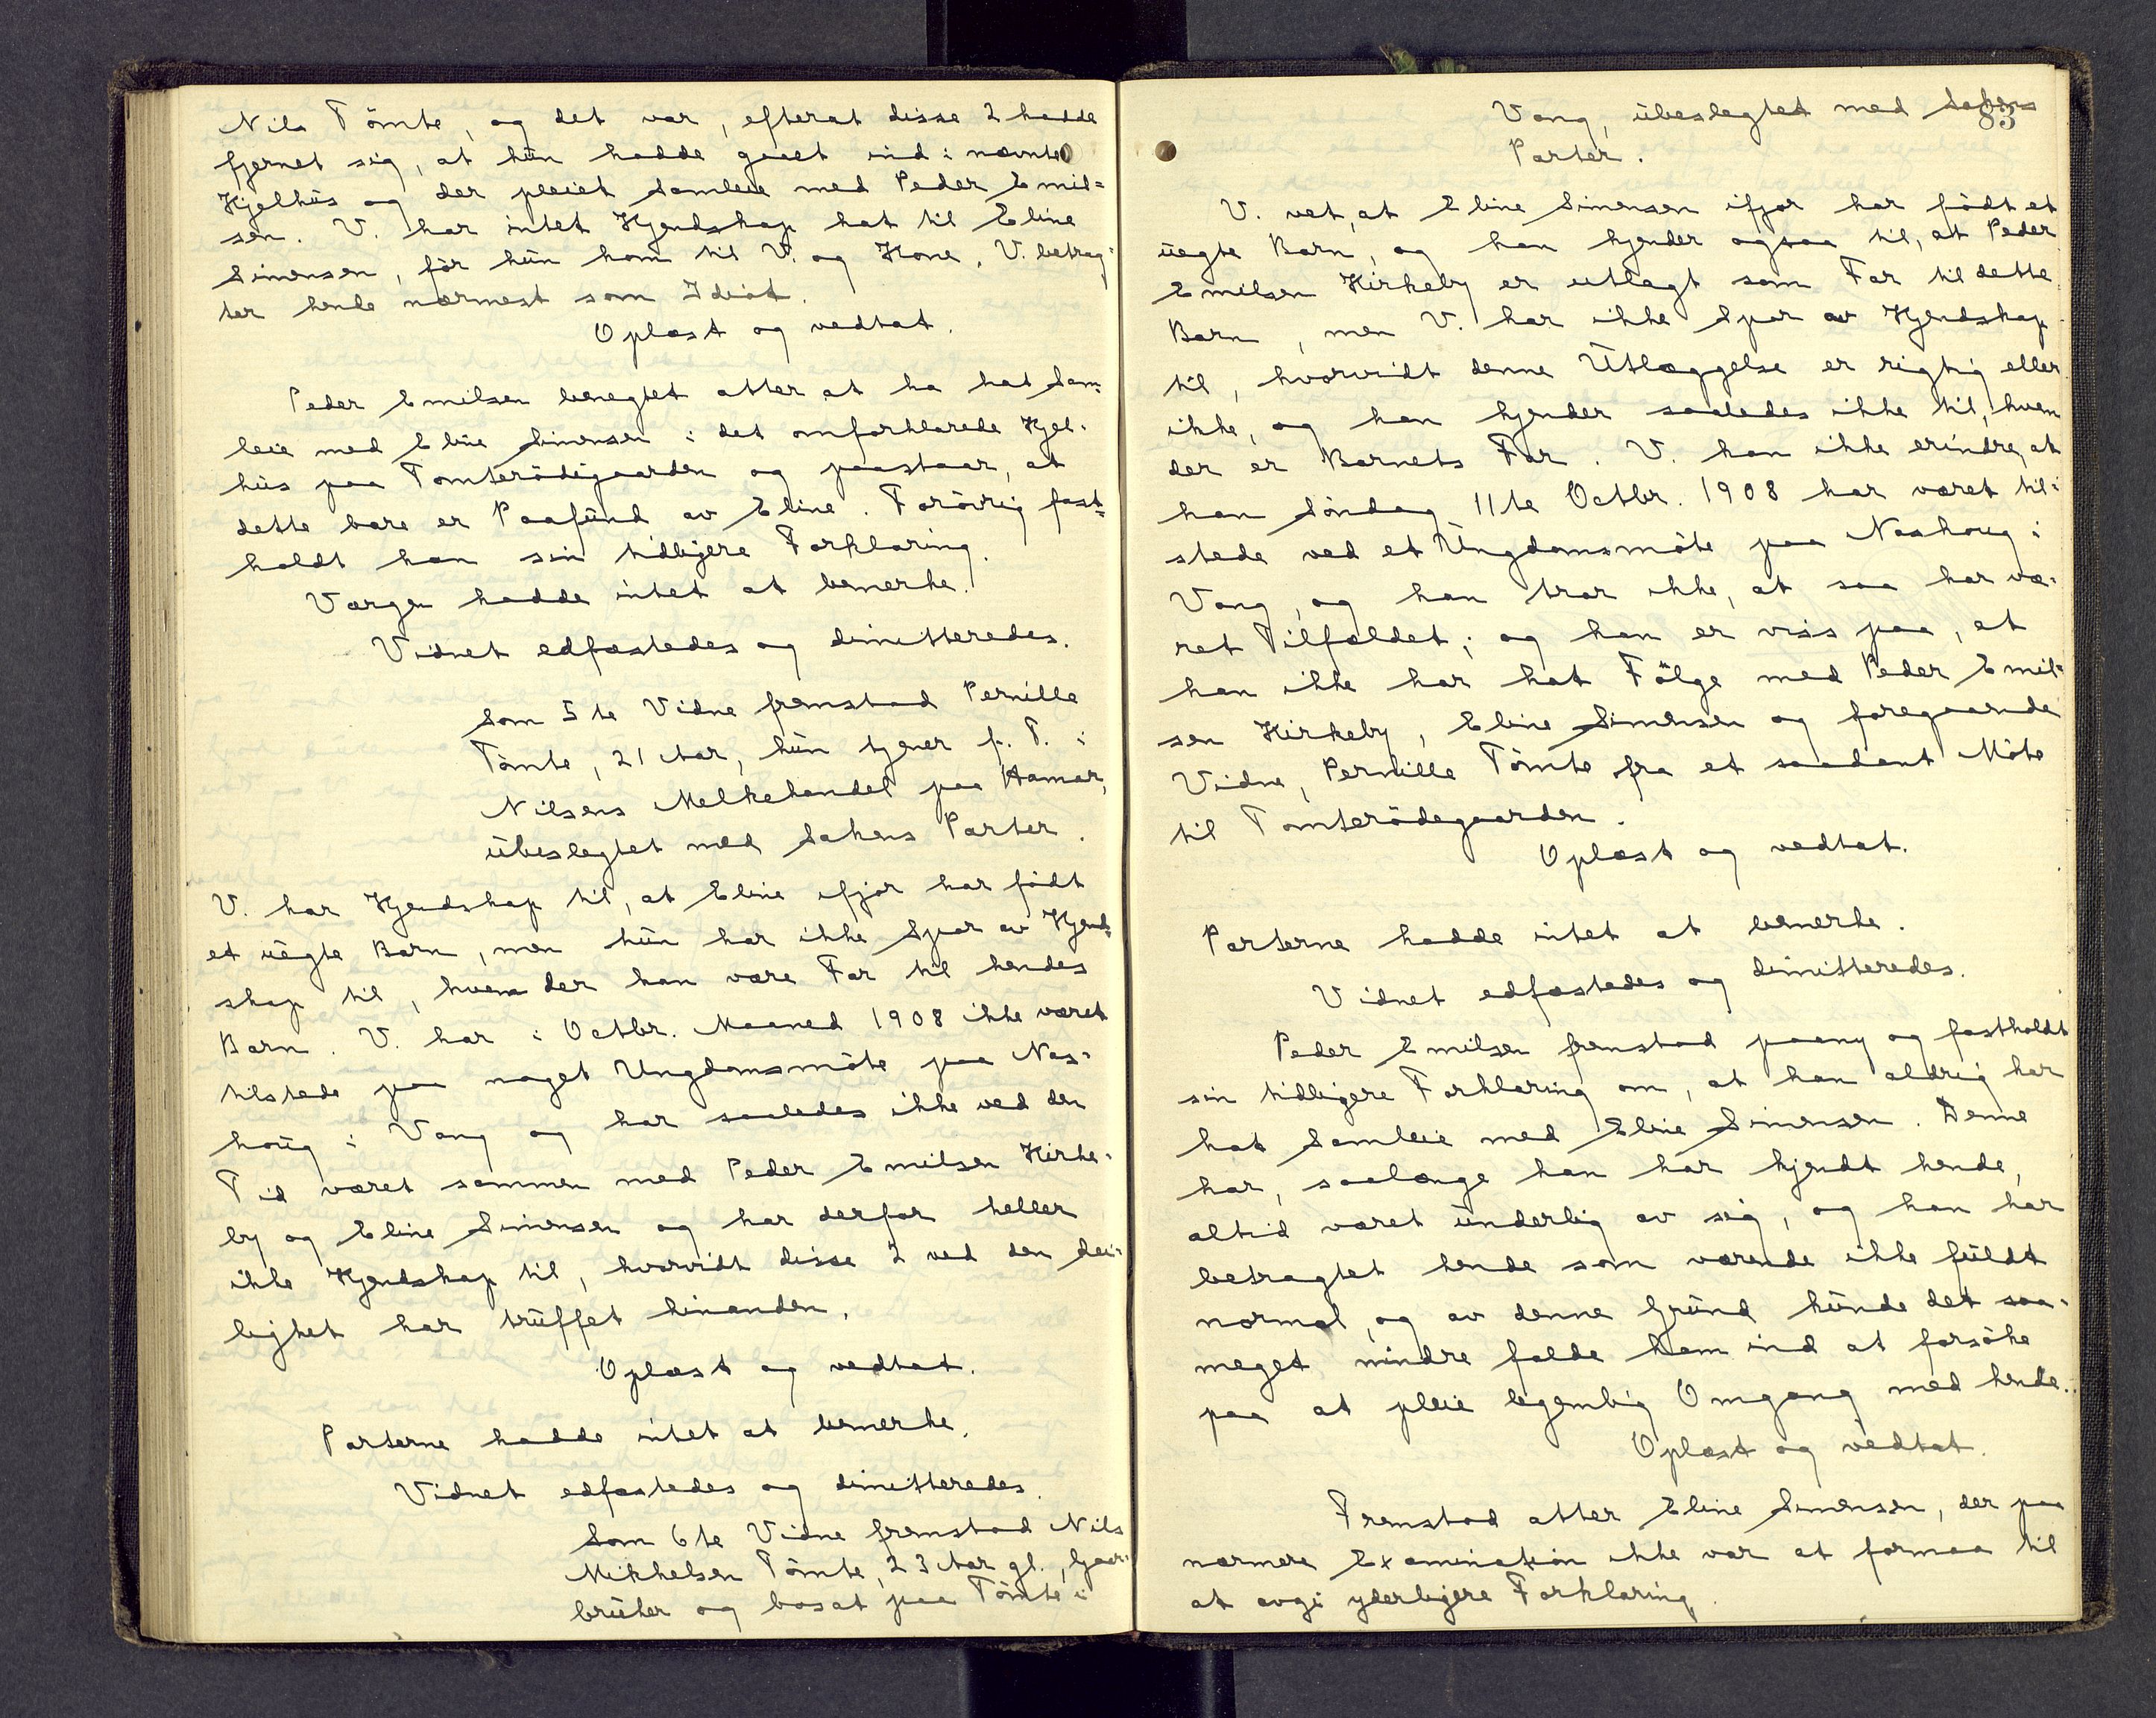 Nils Tömte, og det var, efterat disse 2 hadde
fjernet sig, at hün hadde gaaet ind i nævnte
Kjelhüs og der pleiet Samleie med Peder Emil=
sen. V. har intet Kjendskap hat til Eline
Simensen, för hün kom til V. og Kone. V. betrag=
ter hende nærmest som Idiot.
Oplæst og vedtat.
Peder Emilsen benegtet atter at ha hat Sam=
leie med Eline Simensen i det omforklarede Kjel-
hüs paa Tomterödegaarden og paastaar, at
dette bare er Paafünd av Eline. Forövrig fast=
holdt han sin tidligere Forklaring.
Værgen hadde intet at bemerke.
Vidnet edfæstedes og dimitteredes.
Som 5te Vidne fremstod Pernille
Tömte, 21 Aar, hün tjener p. T. i
Nilsens Melkehandel paa Hamar,
übeslegtet med Sakens Parter.
V. har Kjendskap til, at Eline ifjor har födt
et üegte Barn, men hün har ikke Spor av Kjend=
skap til, hvem der kan være Far til hendes
Barn. V. har i Octbr. Maaned 1908 ikke været
tilstede paa noget Ungdomsmöte paa Nas-
houg i Vang og har saaledes ikke ved den
Tid været sammen med Peder Emilsen Kirke-
by og Eline Simensen og har derfor heller
ikke Kjendskap til, hvorvidt disse 2 ved den Lei-
lighet har trüffet hinanden.
Oplæst og vedtat.
Parterne hadde intet at bemerke.
Vidnet edfæstedes og dimitteredes.
Som 6te Vidne fremstod Nils
Mikkelsen Tömte, 23 Aar gl., Gaar-
brüker og bosat paa Tömte i
83
Vang, übeslegtet med Sakens
Parter.
V. vet, at Eline Simensen ifjor har födt et
üegte Barn, og han kjender ogsaa til, at Peder
Emilsen Kirkeby er utlagt som Far til dette
Barn, men V. har ikke Spor av Kjendskap
til, hvorvidt denne Ütlæggelse er rigtig eller
ikke, og han kjender saaledes ikke til, hvem
der er Barnets Far. V. kan ikke erindre, at
han Söndag 11te Octbr. 1908 har været til-
stede ved et Üngdomsmöte paa Nashoug i
Vang, og han tror ikke, at saa har væ-
ret Tilfældet; og han er viss paa, at
han ikke har hat Fölge med Peder Emil=
sen Kirkeby, Eline Simensen og foregaaende
Vidne, Pernille Tömte fra et saadant Möte
til Tomterödegaarden.
Oplæst og vedtat.
Parterne hadde intet at bemerke.
Vidnet edfæstedes og dimitteredes.
Peder Emilsen fremstod paany og fastholdt
sin tidligere Forklaring om, at han aldrig har
hat Samleie med Eline Simensen. Denne
har, saalænge han har kjendt hende,
altid været ünderlig av sig, og han har
betragtet hende som værende ikke füldt
normal, og av denne Gründ künde det saa-
meget mindre falde ham ind at forsöke
paa at pleie legemlig Omgang med hende.
Oplæst og vedtat.
Fremstod atter Eline Simensen, der paa
nærmere Examination ikke var at formaa til
at avgi yderligere Forklaring.